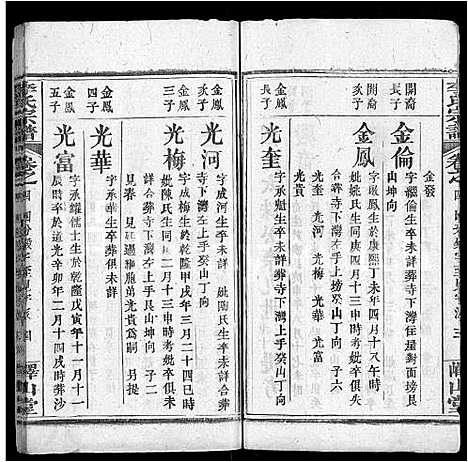 李氏宗譜
卷之
金發
開裔
長子
金倫
字耀倫生卒未詳葬寺下灣住屋對面塝艮
山坤向
開裔
次子
金鳳
字殿鳳生於康熙丁未年四月十八午時
妣姚氏生卒
合葬寺下灣左上塝癸山丁向 子六
光奎 光河 光梅 光華 光富
光貴
金鳳
長子
光奎
字承魁生卒未詳葬寺下灣左上手癸山丁向
金鳳
次子
光河
字成河生卒未詳 妣陶氏生卒未詳合葬
寺下灣左上手癸山丁向
金鳳
三子
光梅
字成梅生於乾隆甲戌年三月二十四
妣陳氏生同年二月十三申時考妣卒俱未
詳葬寺下灣左上手艮山坤向 子二
思春 見廷過繼胞弟光貴為嗣 另提
金鳳
四子
光華
字承華生卒葬俱未詳
光富
字承耀儒士生於乾隆戊寅年十一月十一
辰時卒於道光辛卯年二月十四戌時葬沙
李氏宗譜
卷之